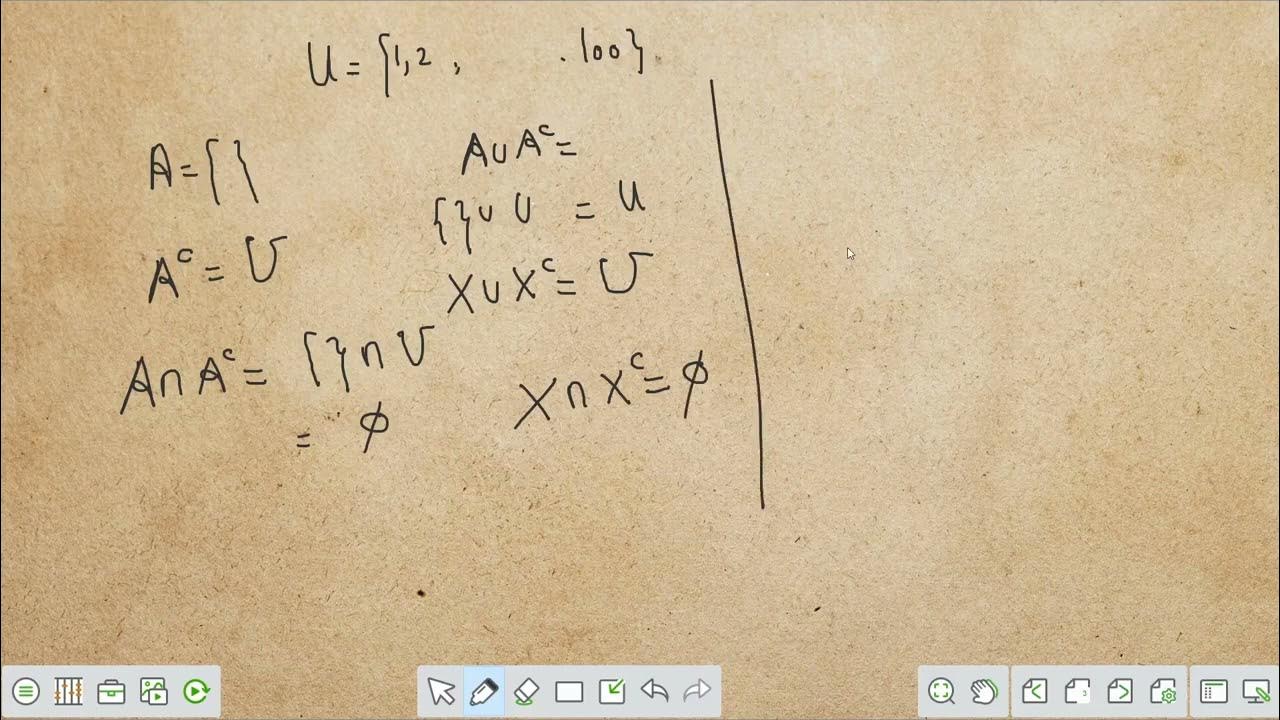 U = {1,2 , . 100}.
A = { }
A^c = U
A ∩ A^c = { } ∩ U
= ϕ
A ∪ A^c =
{ } ∪ U = U
X ∪ X^c = U
X ∩ X^c = ϕ
3